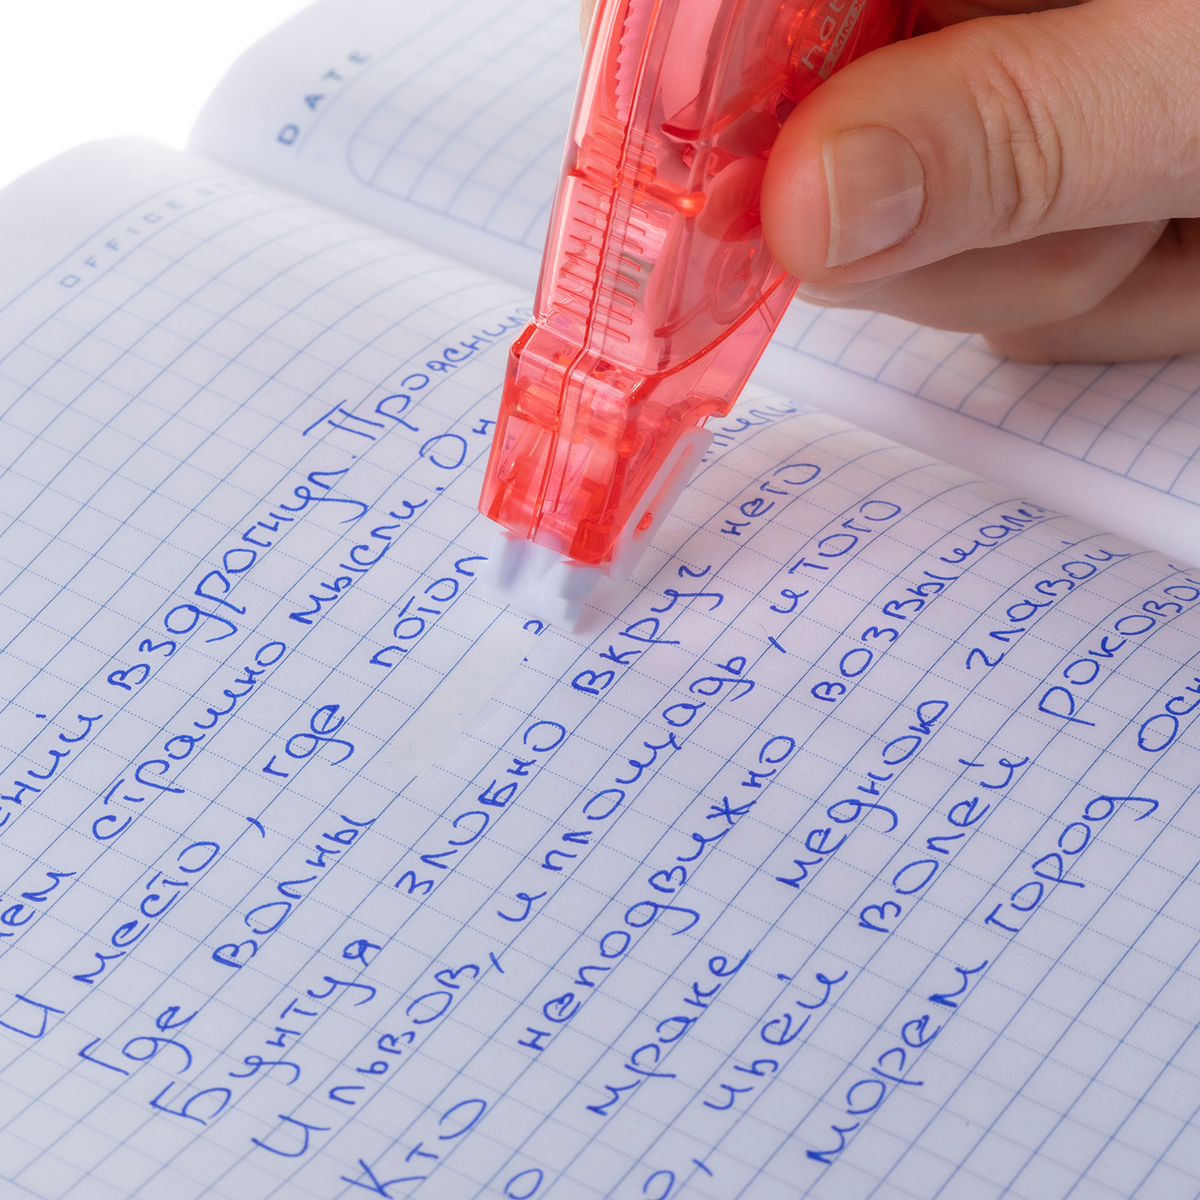 DATE
OFFICE
ений вздрогнул. Прояснил
ем страшно мысли. Он
И место, где потоп
Где волны
Бунтуя злобно вкруг него
И львов, и площадь, и того
Кто неподвижно возвышал
о мраке медною главой
о, чьей волей роковой
морем город осн